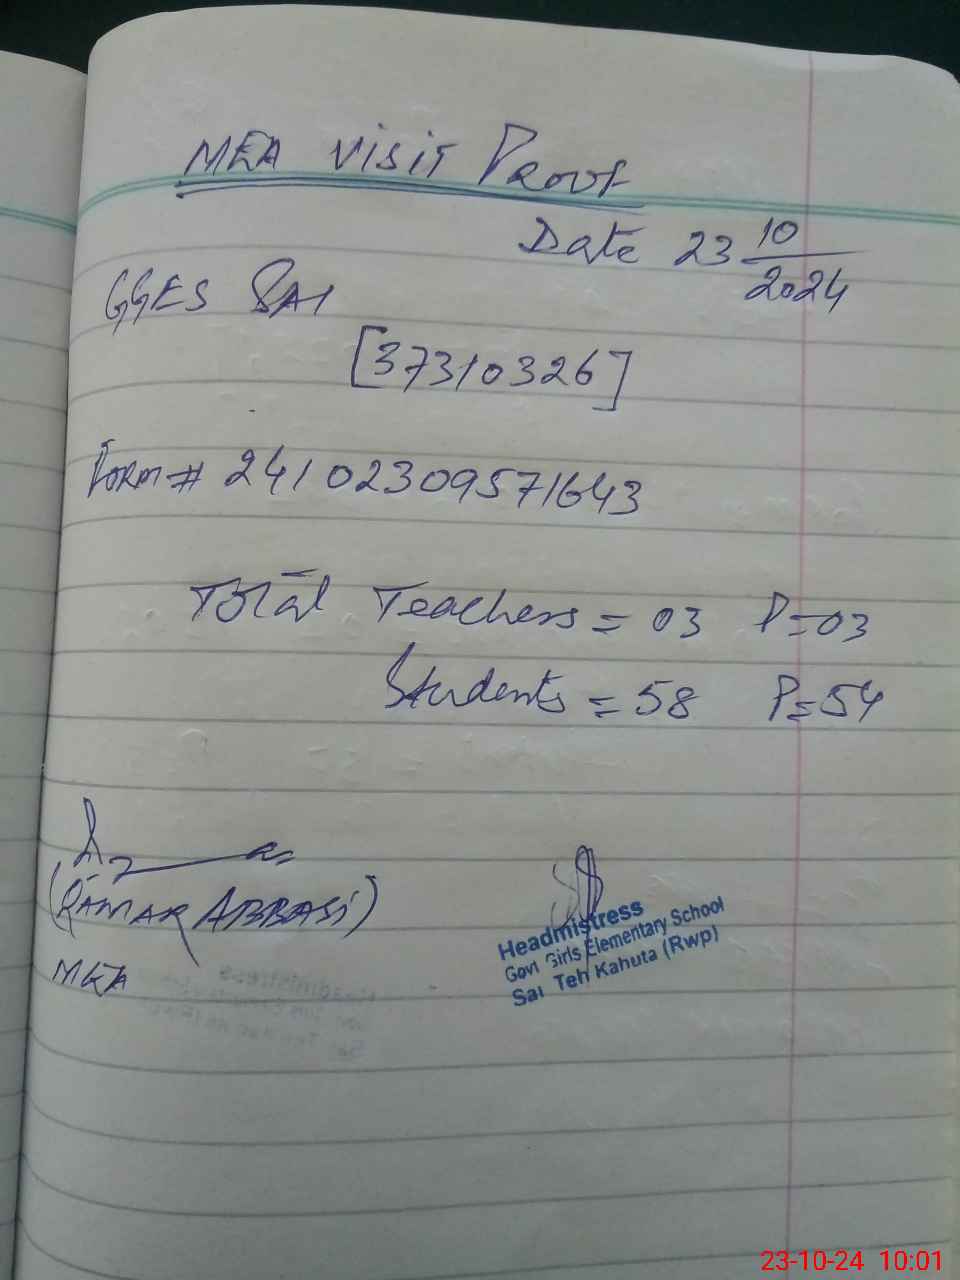 MEA VISIT PROOF
Date 23 10/2024
GGES SAI
[37310326]
FORM # 24102309571643
Total Teachers = 03 P=03
Students = 58 P=54
(QAMAR ABBASI)
MEA
Headmistress
Govt Girls Elementary School
Sai Teh Kahuta (Rwp)
23-10-24 10:01